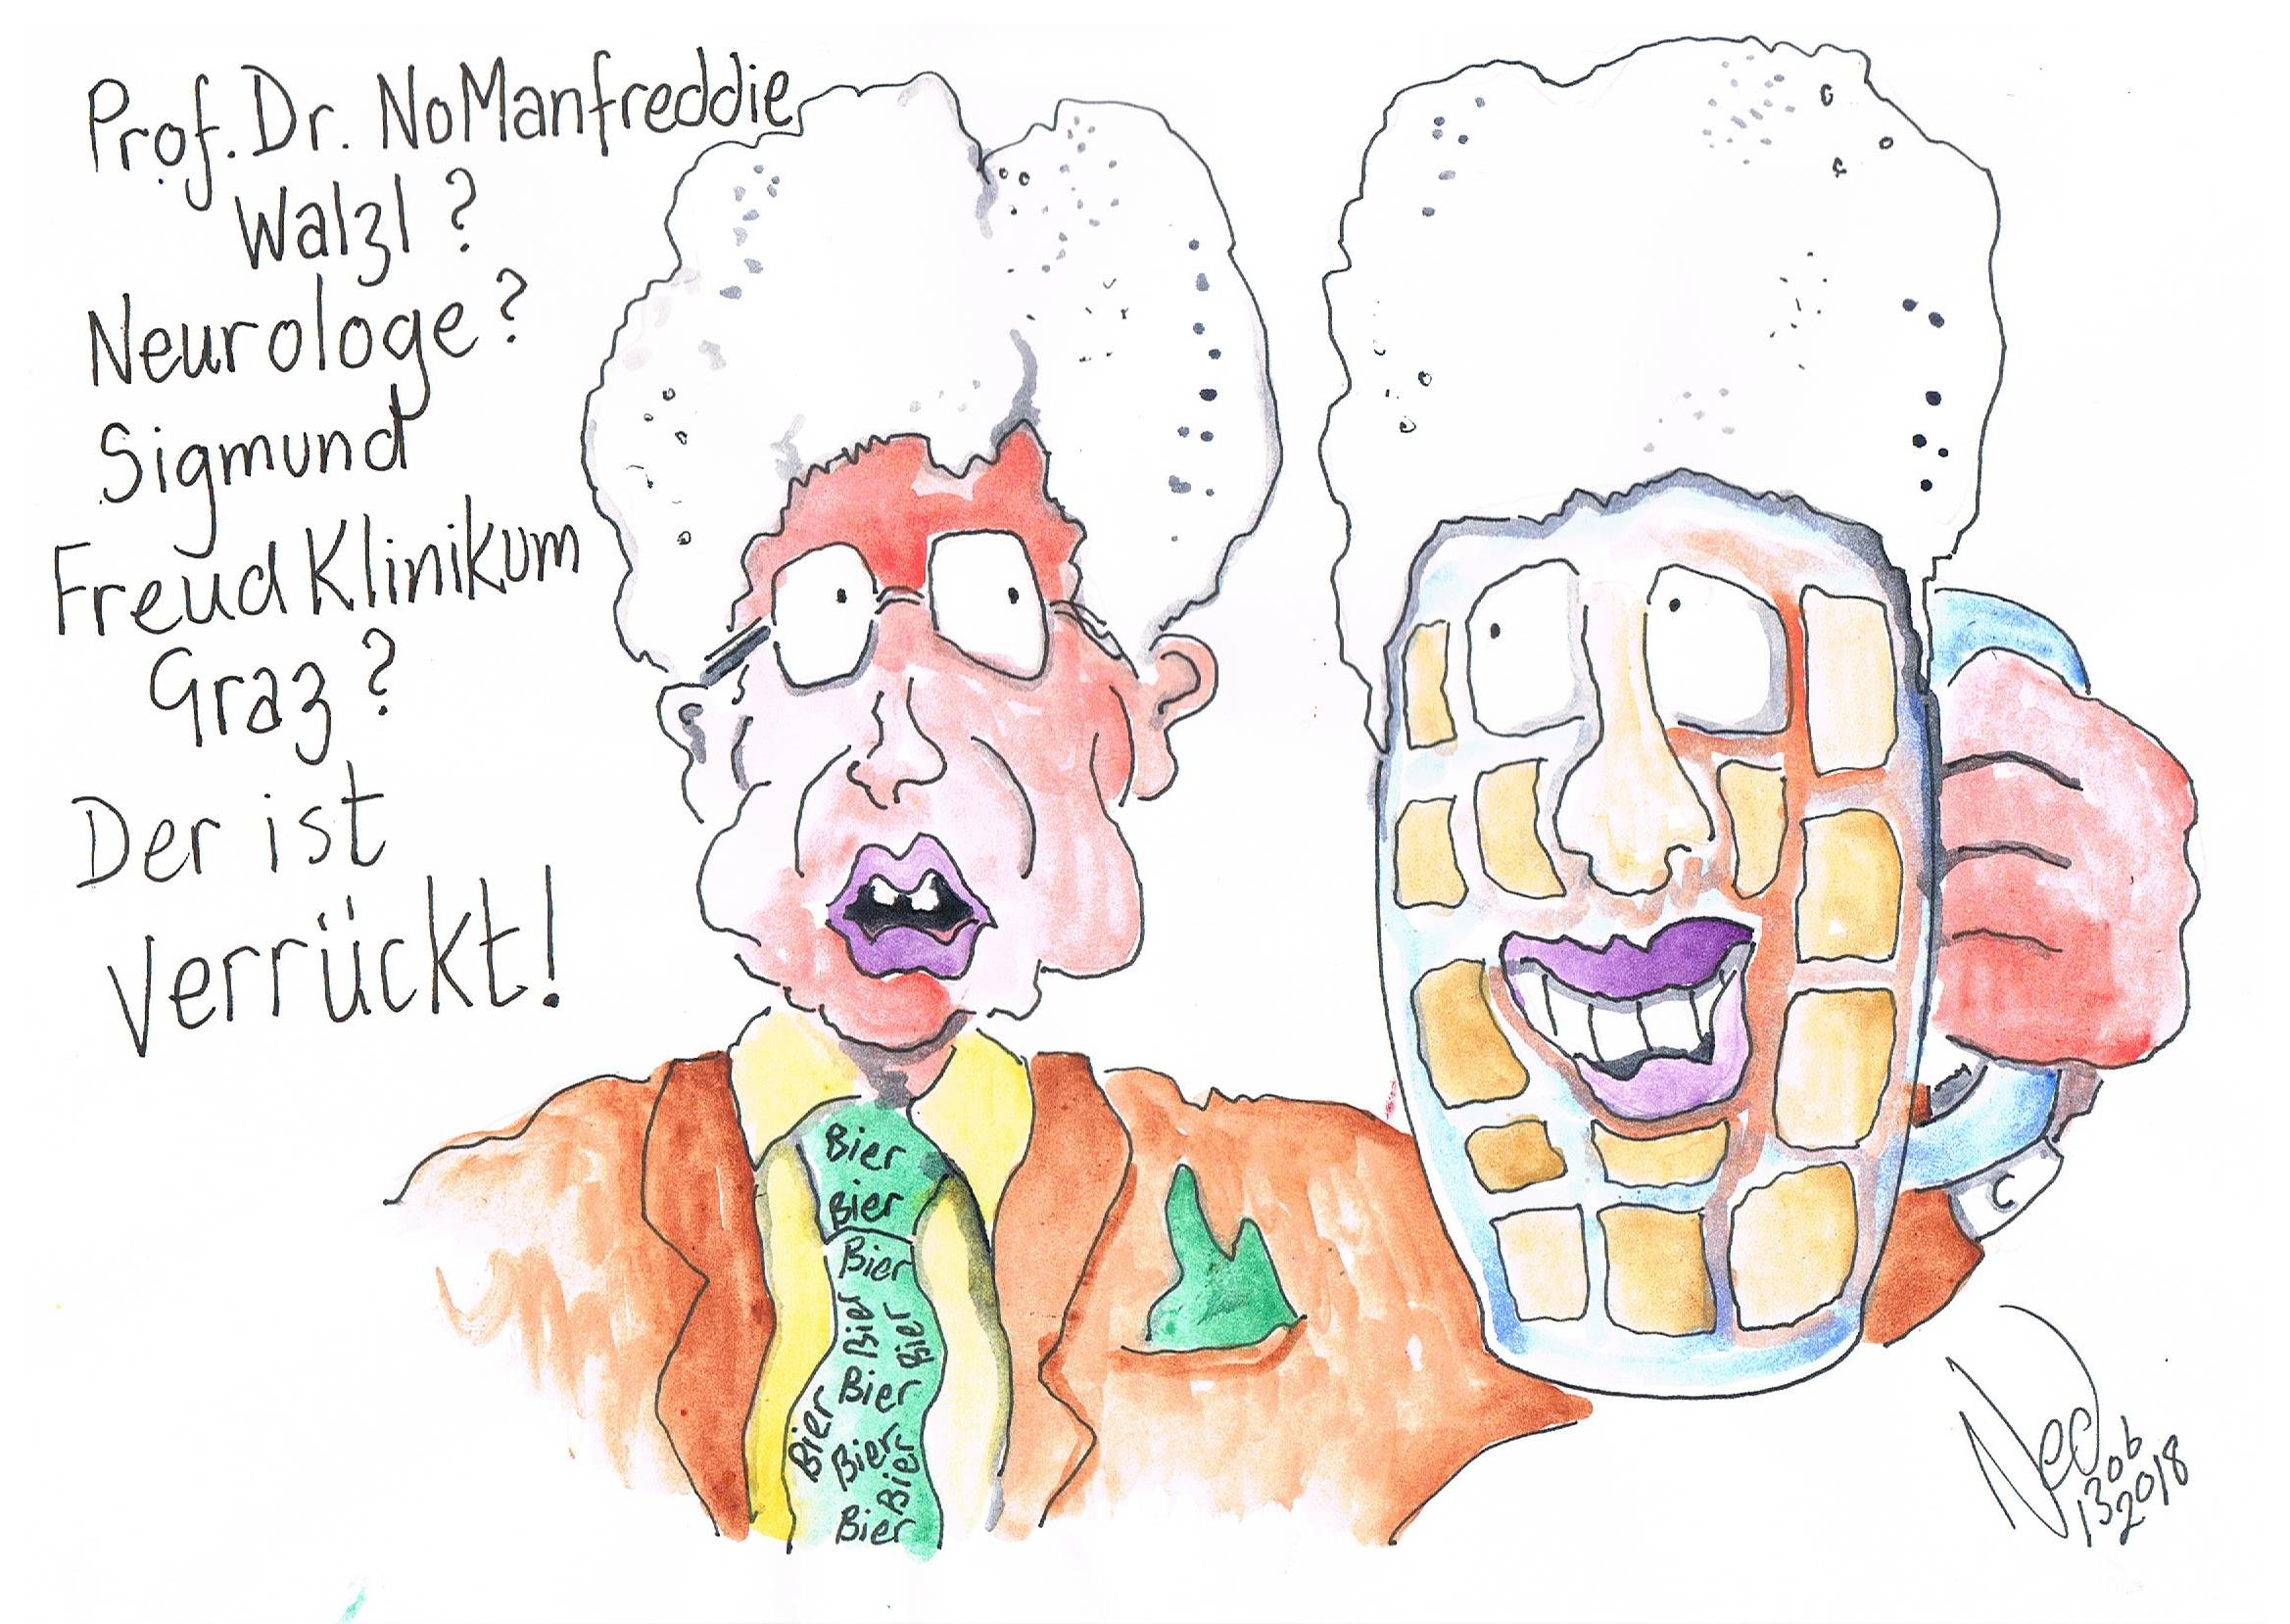 Prof. Dr. NoManfreddie
Walzl?
Neurologe?
Sigmund
Freud Klinikum
Graz?
Der ist
verrückt!
Bier
Bier
Bier
Bier
Bier
Bier
Bier
Bier
Bier
Bier
C
Ned
1306
2018